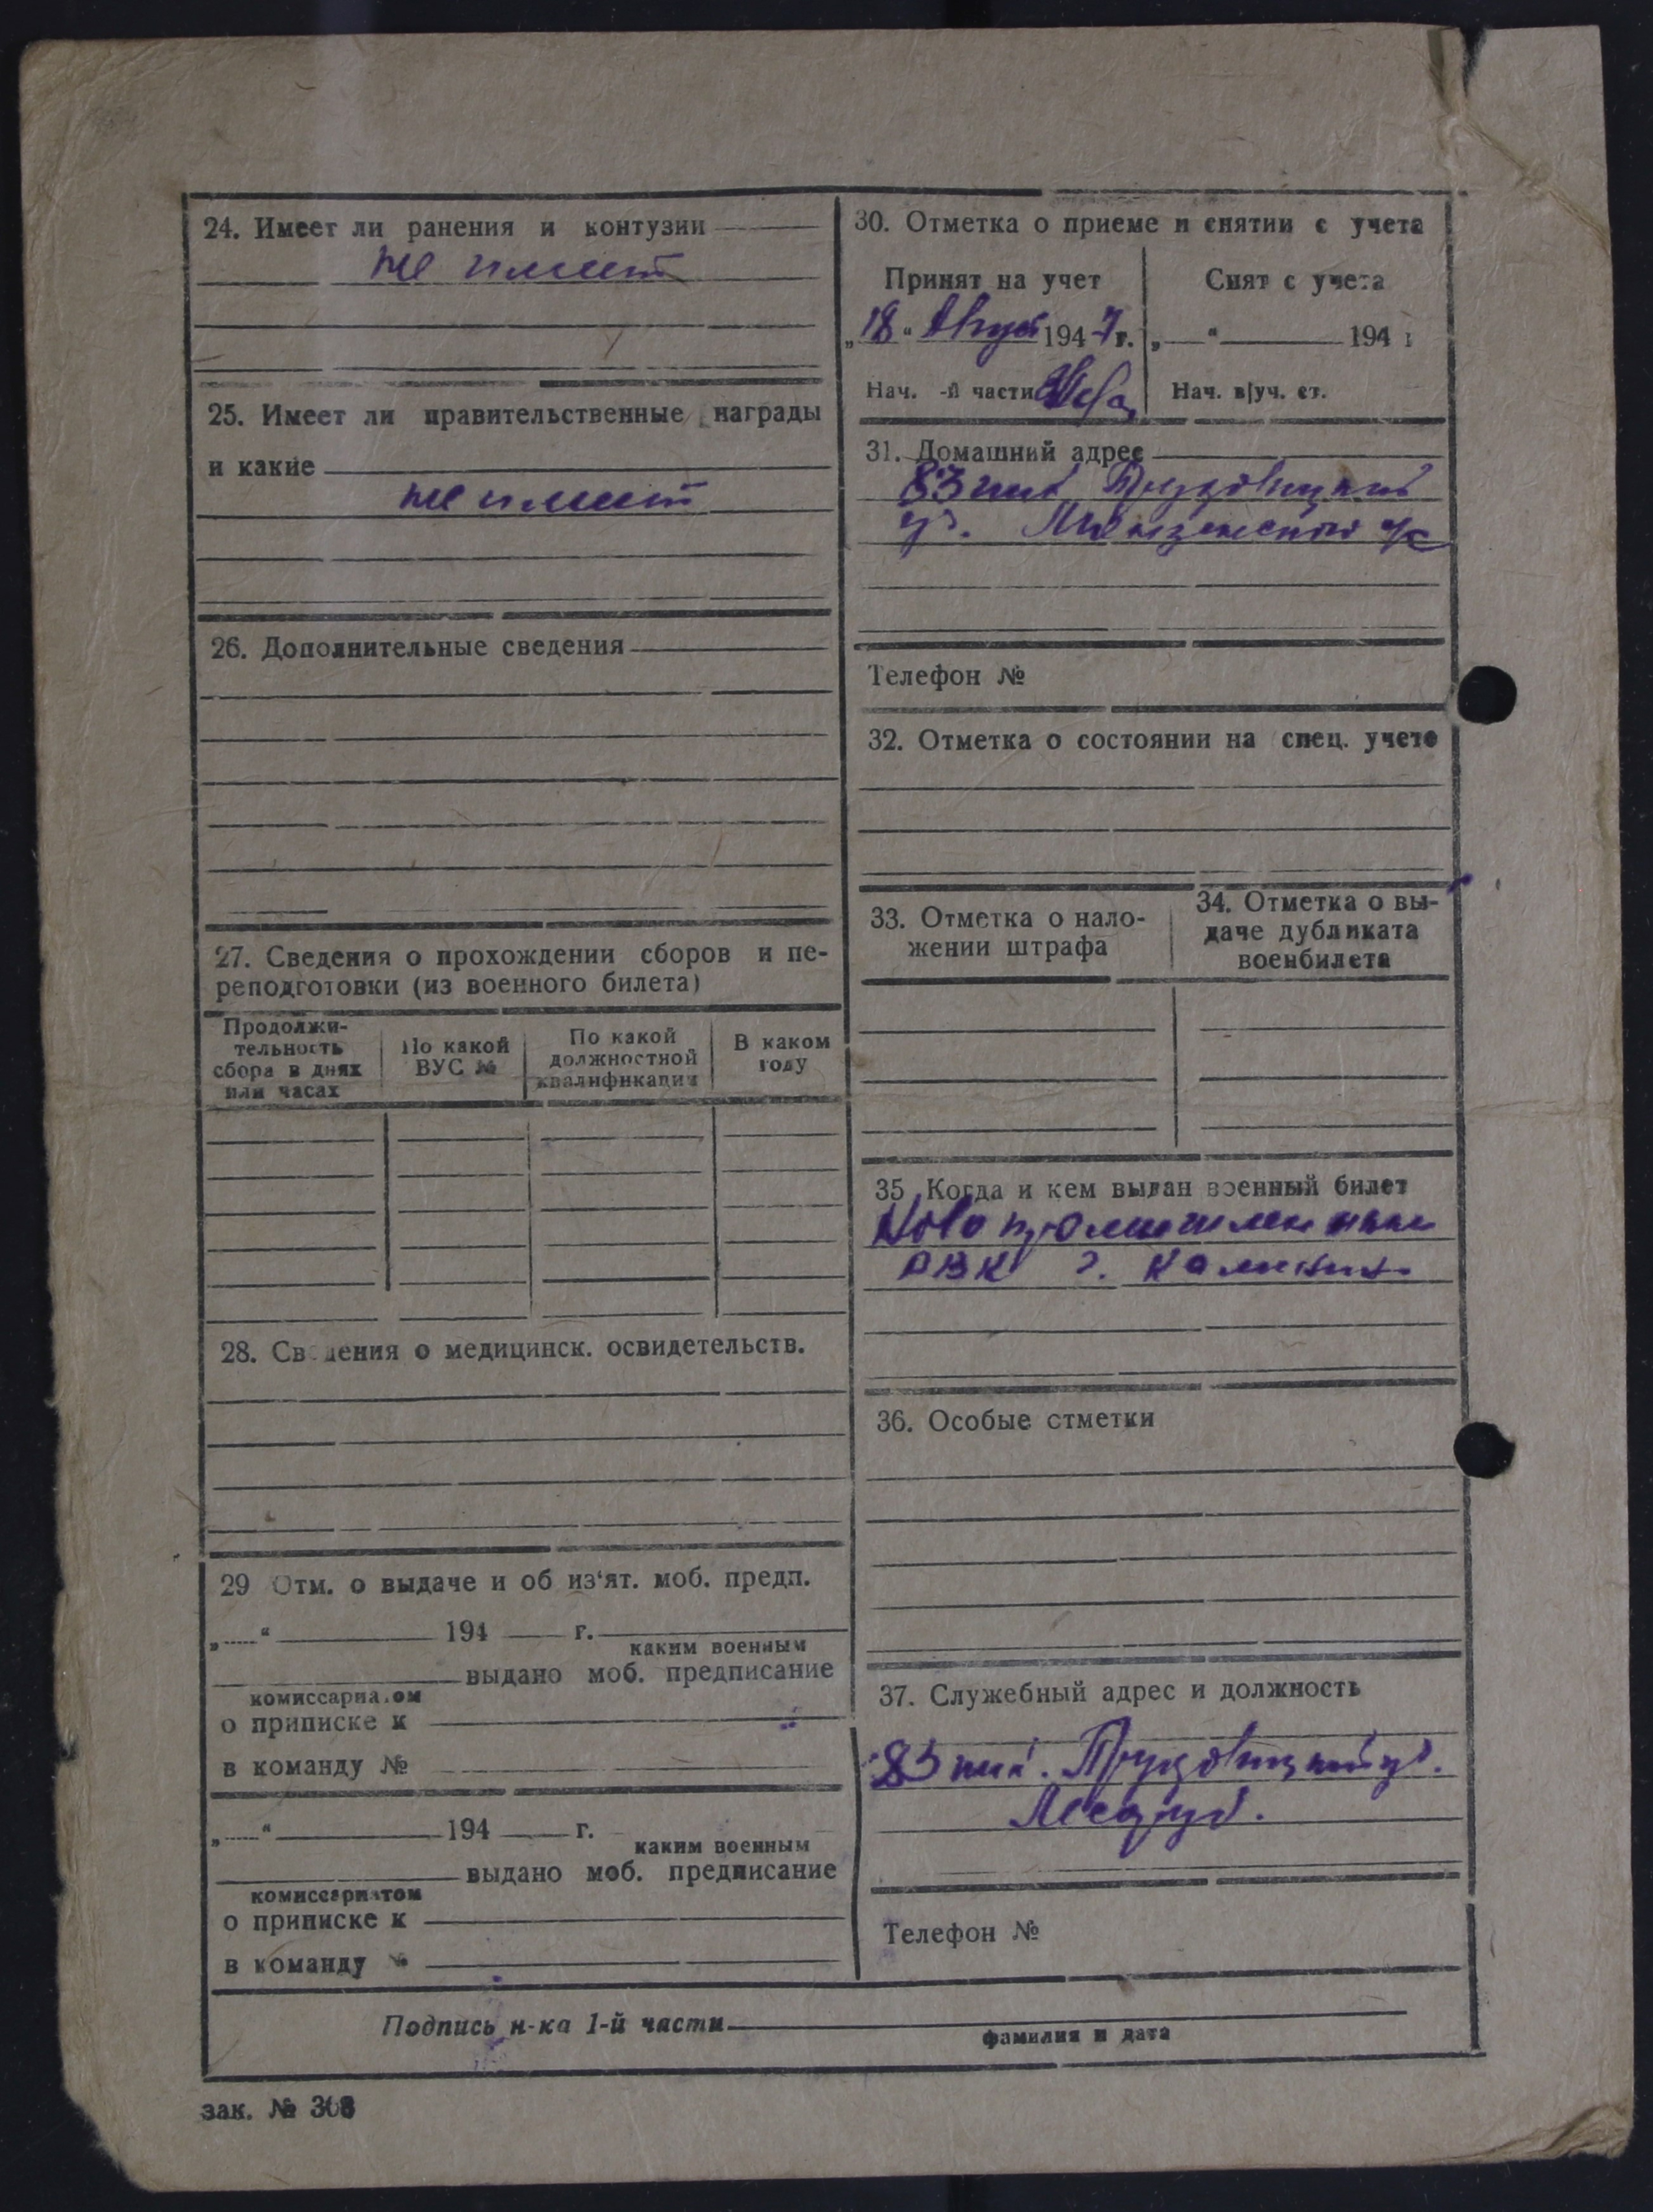 24. Имеет ли ранения и контузии
не имеет
25. Имеет ли правительственные награды
и какие
не имеет
26. Дополнительные сведения
27. Сведения о прохождении сборов и пе-
реподготовки (из военного билета)
Продолжи-
тельность
сбора в днях
или часах
По какой
ВУС №
По какой
должностной
квалификации
В каком
году
28. Сведения о медицинск. освидетельств.
29 Отм. о выдаче и об из'ят. моб. предп.
„ “ 194 г.
каким военным
выдано моб. предписание
комиссариатом
о приписке к
в команду №
„ “ 194 г.
каким военным
выдано моб. предписание
комиссариатом
о приписке к
в команду №
30. Отметка о приеме и снятии с учета
Принят на учет
„18“ Август 1947г.
Нач. -й части
Снят с учета
„ “ 194 г
Нач. в|уч. ст.
31. Домашний адрес
83 пик.
Телефон №
32. Отметка о состоянии на спец. учете
33. Отметка о нало-
жении штрафа
34. Отметка о вы-
даче дубликата
военбилета
35 Когда и кем выдан военный билет
Новопромышленным
РВК г. Калинин
36. Особые отметки
37. Служебный адрес и должность
83 пик.
Лесоруб.
Телефон №
Подпись н-ка 1-й части
фамилия и дата
зак. № 308